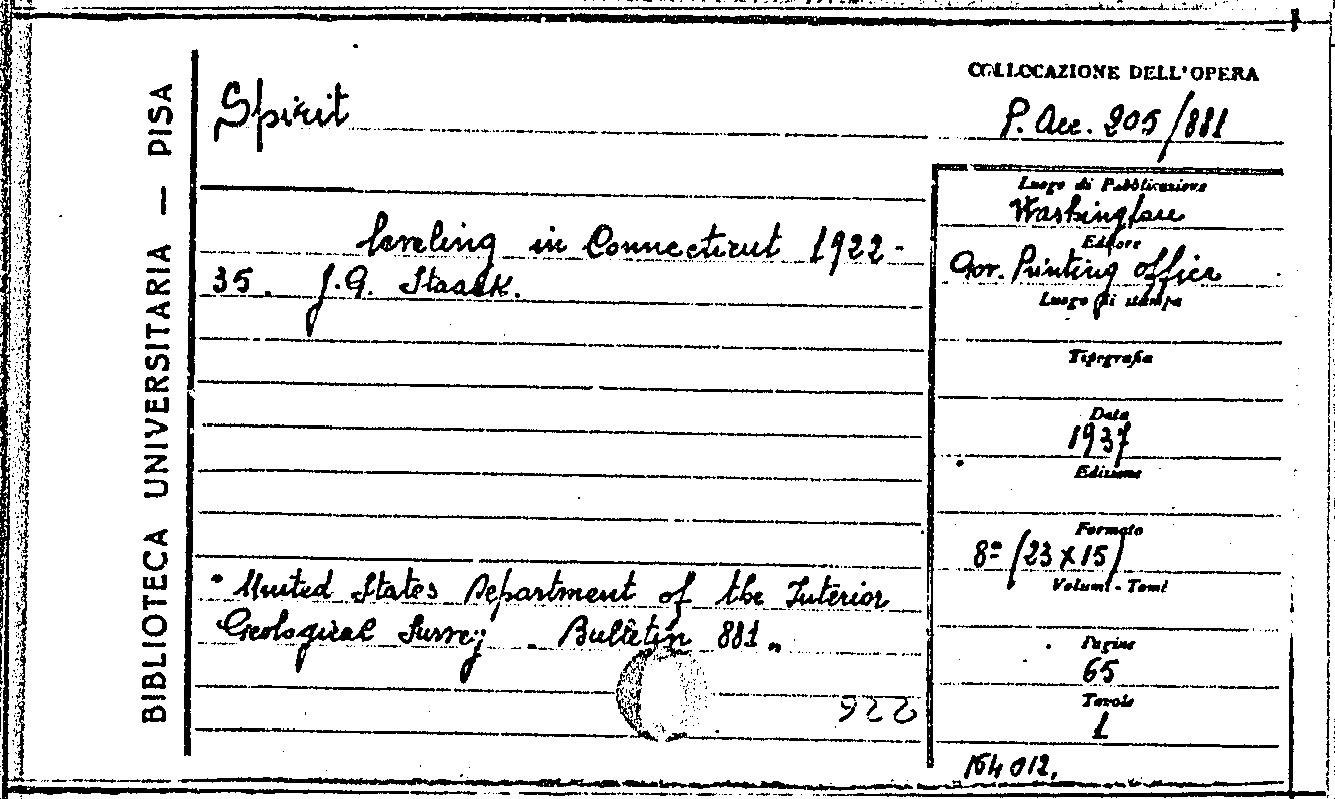 BIBLIOTECA UNIVERSITARIA — PISA
Spirit
leveling in Connecticut 1922-
35. J.G. Staack.
" United States Department of the Interior
Geological Survey . Bulletin 881 "
922
COLLOCAZIONE DELL'OPERA
P. Acc. 205/881
Luogo di Pubblicazione
Washington
Editore
Gov. Printing office
Luogo di stampa
Tipografia
Data
1937
Edizione
Formato
8º (23 x 15)
Volumi - Tomi
Pagine
65
Tavole
1
164012.